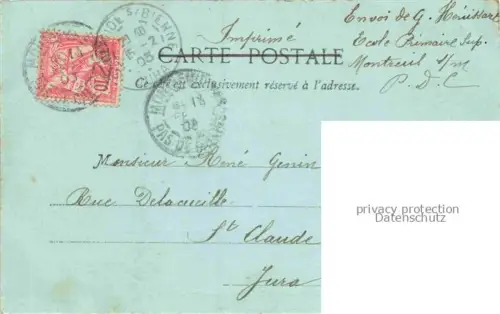 Imprimé
Envoi de G.
École Primaire Sup.
Montreuil s/m
P.D.C
CARTE POSTALE
Ce côté est exclusivement réservé à l'adresse.
PAS DE CALAIS
Monsieur René Genin
Rue
St Claude
Jura
privacy protection
Datenschutz